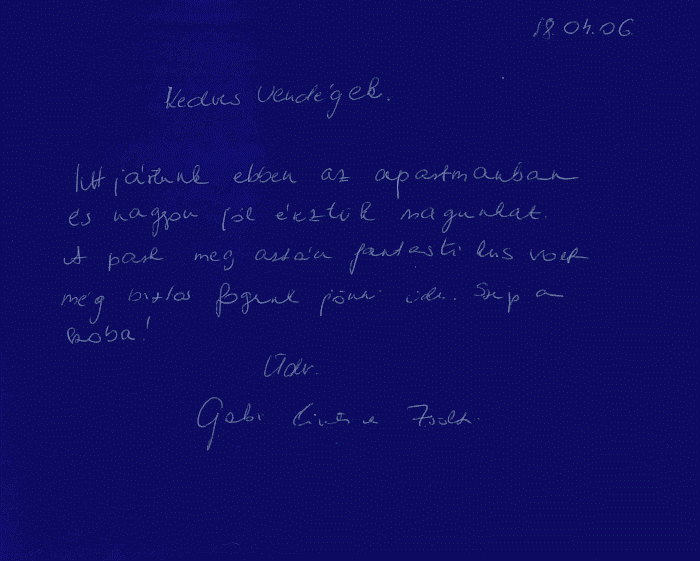 18.04.06
Kedves Vendégek.
Itt jártunk ebben az apartmanban
és nagyon jól éreztük magunkat.
A park meg aztán fantasztikus volt
még biztos fogunk jönni ide. Szép a
szoba!
Üdv.
Gabi Zsolt